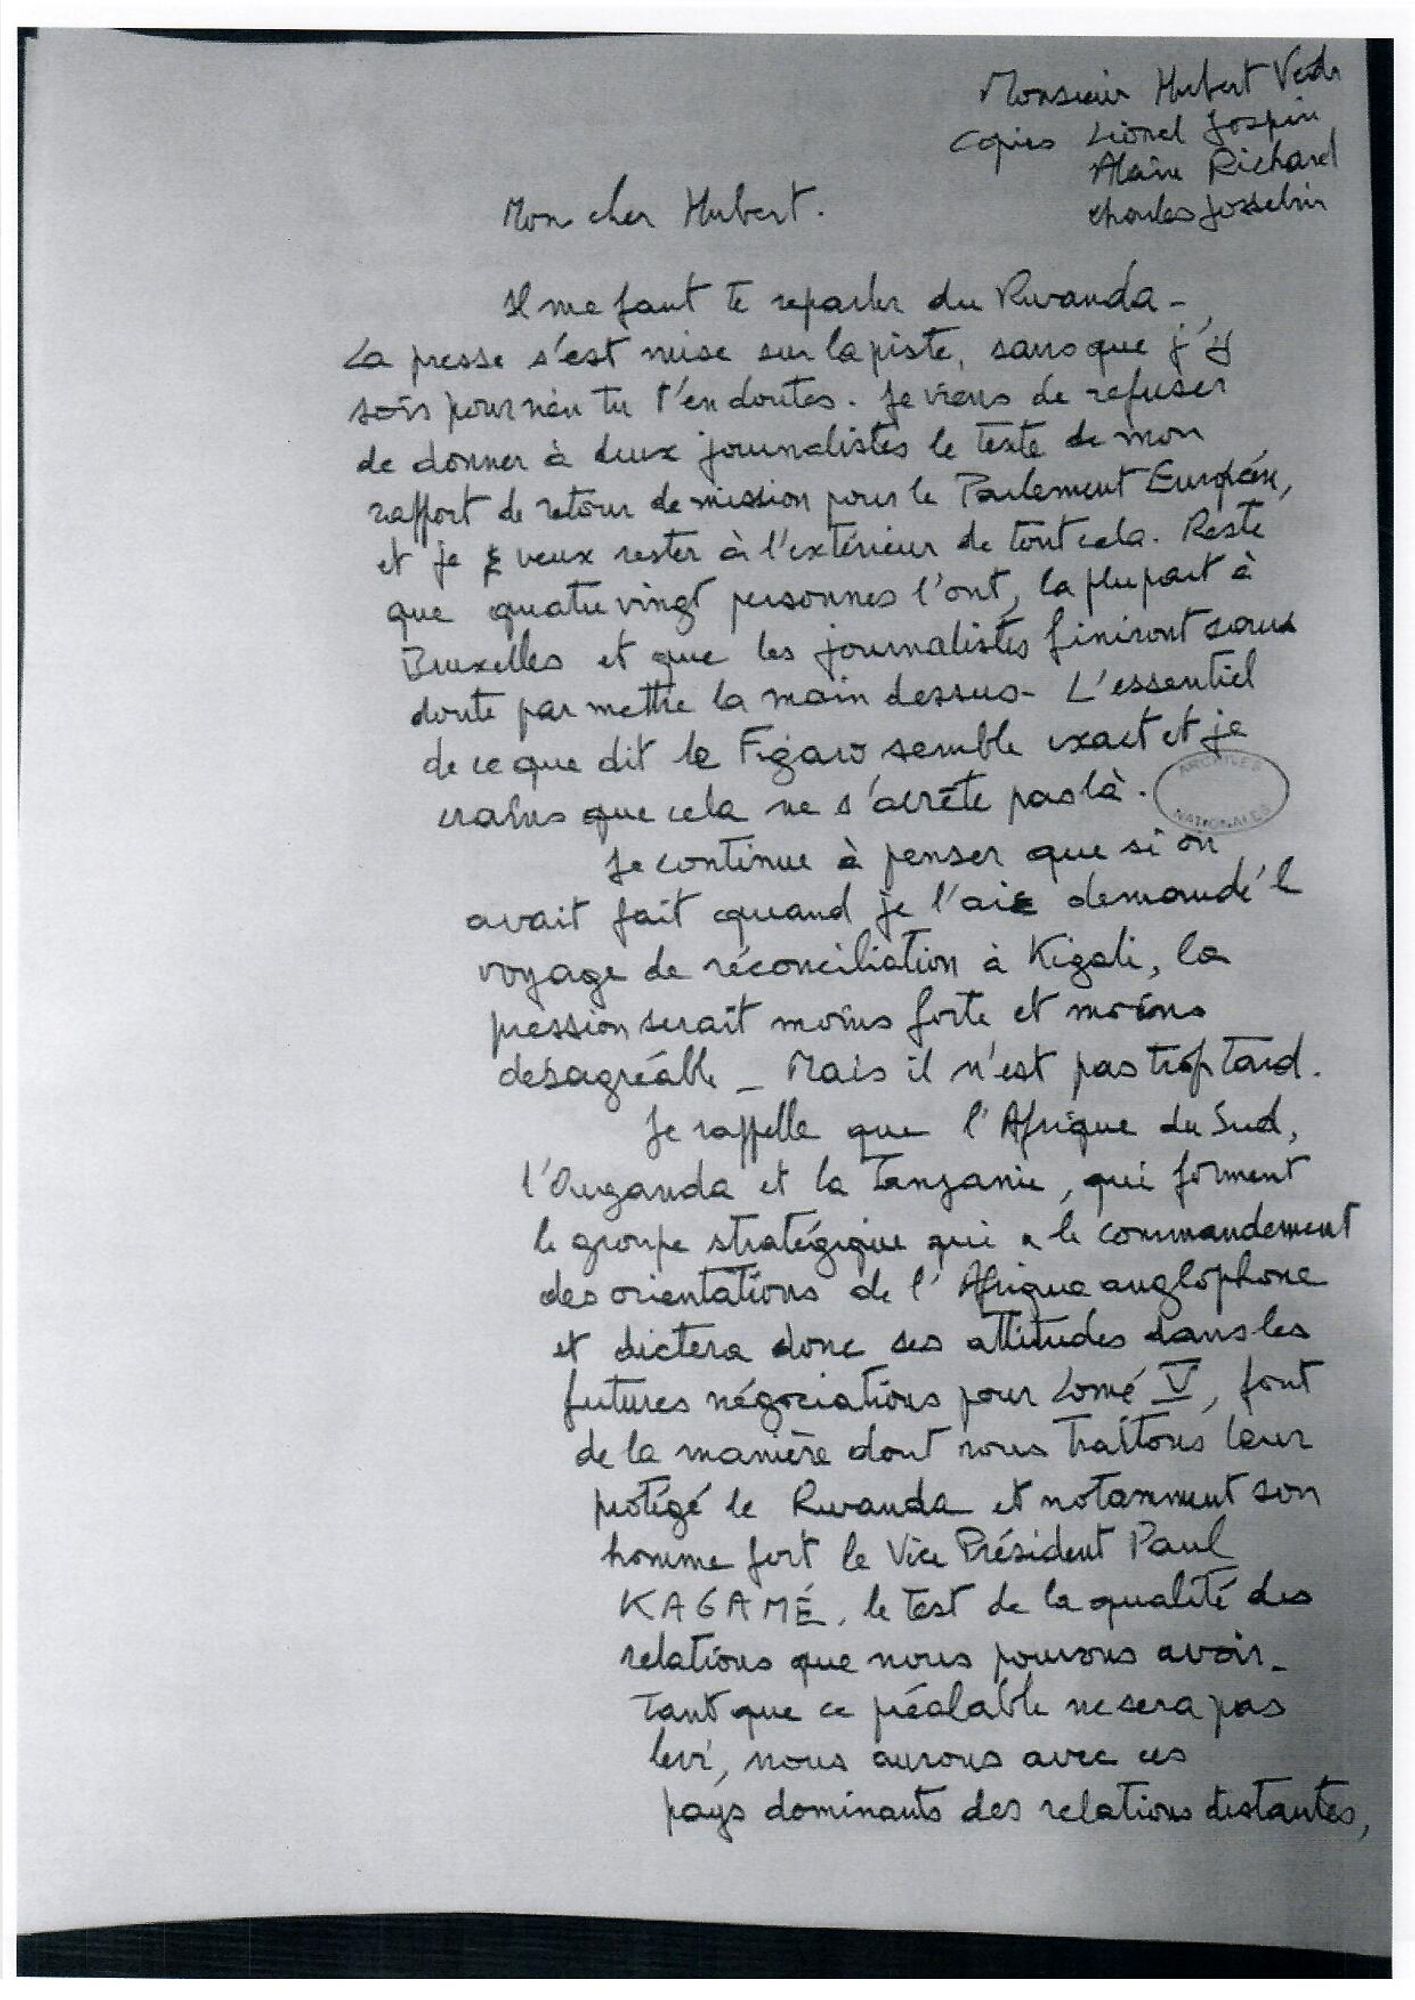 Monsieur Hubert Védr
Copies Lionel Jospin
Alain Richard
Charles Josselin
Mon cher Hubert.
Il me faut te reparler du Rwanda -
La presse s'est mise sur la piste, sans que j'y
sois pour rien tu t'en doutes. Je viens de refuser
de donner à deux journalistes le texte de mon
rapport de retour de mission pour le Parlement Européen,
et je veux rester à l'extérieur de tout cela. Reste
que quatre vingt personnes l'ont, la plupart à
Bruxelles et que les journalistes finiront sans
doute par mettre la main dessus - L'essentiel
de ce que dit le Figaro semble exact et je
crains que cela ne s'arrête pas là.
ARCHIVES NATIONALES
Je continue à penser que si on
avait fait quand je l'ai demandé l
voyage de réconciliation à Kigali, la
pression serait moins forte et moins
désagréable - Mais il n'est pas trop tard.
Je rappelle que l'Afrique du Sud,
l'Ouganda et la Tanzanie, qui forment
le groupe stratégique qui a le commandement
des orientations de l'Afrique anglophone
et dictera donc ses attitudes dans les
futures négociations pour Lomé V, font
de la manière dont nous traitons leur
protégé le Rwanda et notamment son
homme fort le Vice Président Paul
KAGAMÉ, le test de la qualité des
relations que nous pouvons avoir -
Tant que ce préalable ne sera pas
levé, nous aurons avec ces
pays dominants des relations distantes,